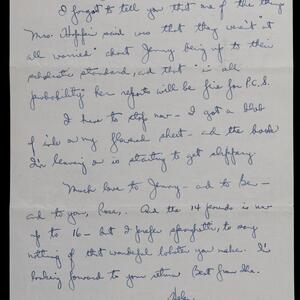 I forgot to tell you that one of the things
Mrs. said was that they weren't "at
all worried" about Jenny being up to their
scholastic standard, and that "in all
probability" her reports will be fine for P.C.S.
I have to stop now - I got a blob
of ink on my flowered sheet - and the book
I'm leaning on is starting to get slippery.
Much love to Jenny - and to Ben -
and to you, Rose,. And the 14 pounds is now
up to 16 - but I prefer spaghetti, to say
nothing of that wonderful lobster you make. I'm
looking forward to your return. Best from Ida.